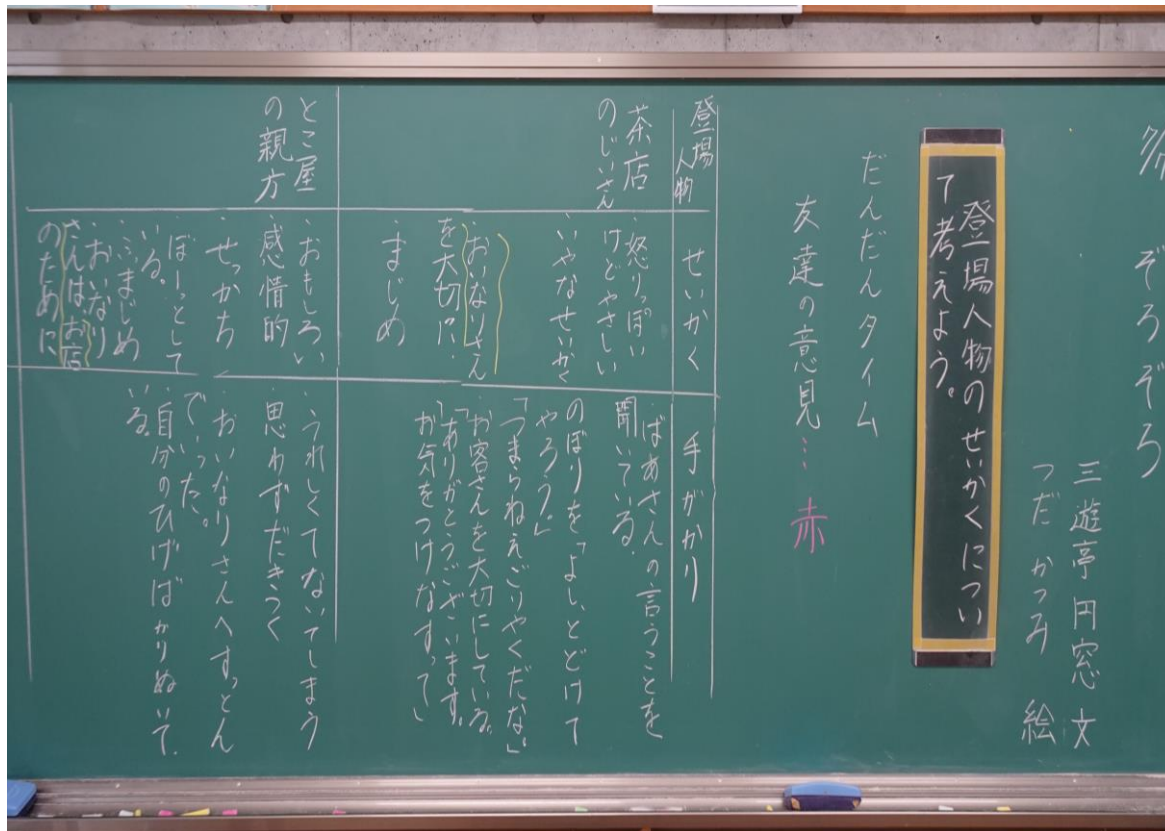 ぞろぞろ
三遊亭 円窓 文
つだ かつみ 絵
登場人物のせいかくについ
て考えよう。
だんだんタイム
友達の意見…赤
登場人物
せいかく
手がかり
茶店
のじいさん
・怒りっぽい
けどやさしい
いやなせいかく
・おいなりさん
を大切に・
・まじめ
・ばあさんの言うことを
聞いている。
のぼりを「よし、とどけて
やろう。」
「つまらねえごりやくだな。」
お客さんを大切にしている。
「ありがとうございます。
お気をつけなすって」
とこ屋
の親方
・おもしろい
感情的
せっかち
・ぼーっとして
いる。
・ふまじめ
・おいなり
さんは、お店
のために
・うれしくてないてしまう
思わずだきつく
・おいなりさんへすっとん
でいった。
・自分のひげばかりぬいて
いる。